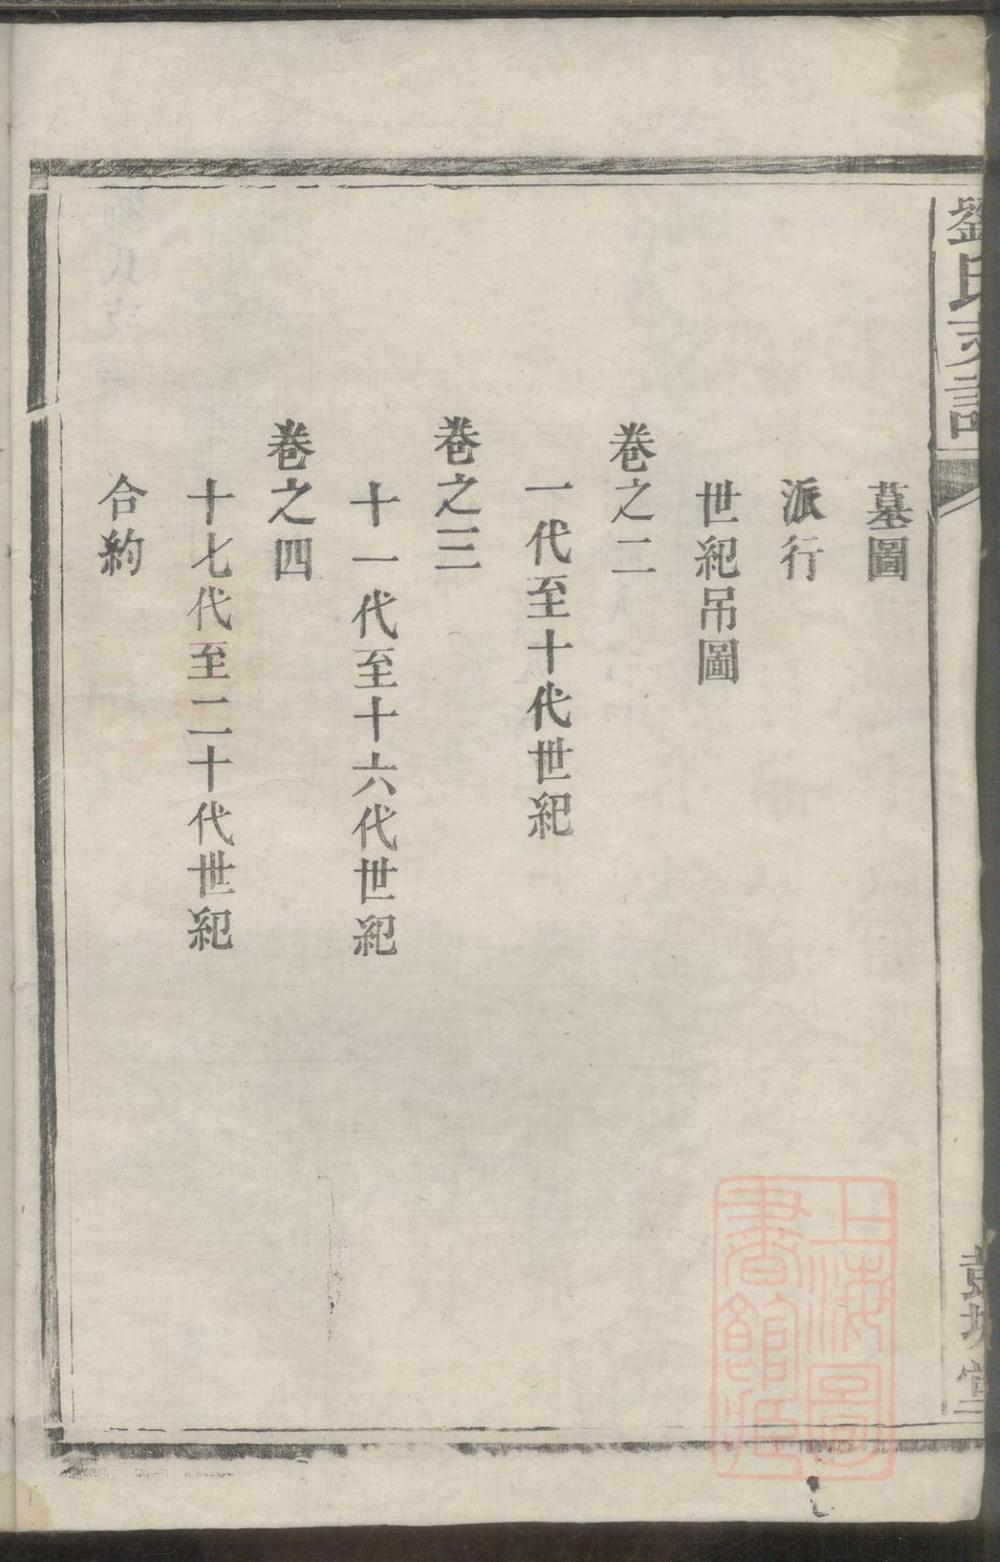 劉氏支譜
墓圖
派行
世紀吊圖
卷之二
一代至十代世紀
卷之三
十一代至十六代世紀
卷之四
十七代至二十代世紀
合約
堂
上海圖
書館藏